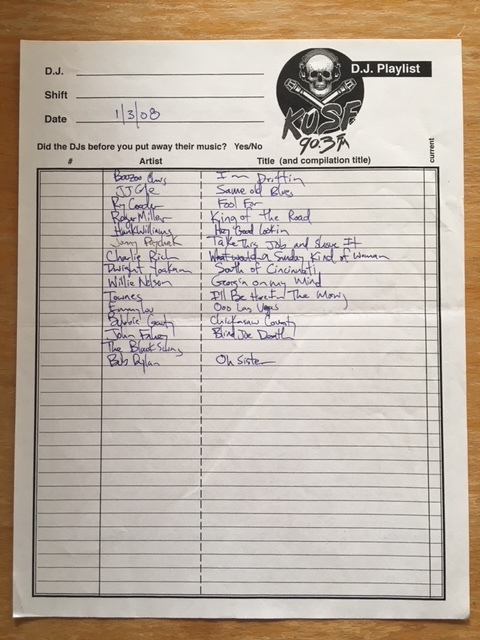 D.J. Playlist
D.J.
Shift
Date 1/3/08
KUSF
90.3 FM
Did the DJs before you put away their music? Yes/No
# Artist Title (and compilation title) current
Boozoo I Driftin
JJ Cale Same old Blues
Ry Cooder Fool For
Roger Miller King of the Road
Hank Williams Hey Good Lookin
Jonny Paychek Take This Job and Shove It
Charlie Rich What would a Sunday Kind of Woman
Dwight Yoakam South of Cincinnati
Willie Nelson Georgia on my Mind
Townes I'll Be Here In The Morning
Emmylou Ooo Las Vegas
Bobbie Gentry Chickasaw County
John Fahey Blind Joe Death
The Black
Bob Dylan Oh Sister